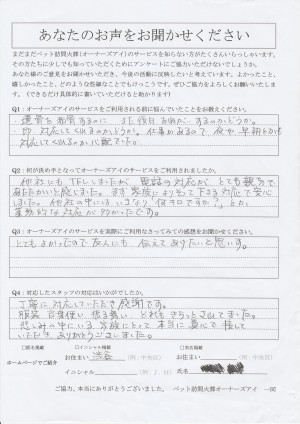 あなたのお声をお聞かせください
まだまだペット訪問火葬(オーナーズアイ)のサービスを知らない方がたくさんいらっしゃいます。
その方たちに少しでも知っていただくためにアンケートにご協力いただけないでしょうか。
あなた様のご意見をお聞かせいただき、今後の活動に反映したいと考えています。よかったこと、
嬉しかったこと、どのような些細なことでもけっこうです。ぜひご協力をよろしくお願いいたし
ます。(できるだけ具体的に書いていただけると助かります)
Q1:オーナーズアイのサービスをご利用される前に悩んでいたことをお教えください。
対応してくれるのか心配でした。
Q2:何が決め手となってオーナーズアイのサービスをご利用されましたか。
他社にも TELしましたが、電話の対応が とても親切で、
あたたかいと感じました。まず家族によりそって下さる対応で安心
しました。他社の中には いきなり「何キロですか?」とか、
業務的な対応が多かったです。
Q3:オーナーズアイのサービスを実際にご利用なさってみての感想をお聞かせください。
とてもよかったので友人にも 伝えてあげたいと思います。
Q4:対応したスタッフの対応はいかがでしたか。
丁寧に対応していただき感謝です。
服装、言葉使い、振る舞い、どれもきちっとされてました。
悲しみの中にいる家族にとって 本当に真心で接して
いただき、ありがとうございました。
□匿名掲載 □イニシャル掲載 □氏名掲載
ホームページでご紹介 お住まい 渋谷 (例:中央区) お住まい (例:中央区)
イニシャル (例:I.H) 氏名
ご協力、本当にありがとうございました。 ペット訪問火葬オーナーズアイ 一同